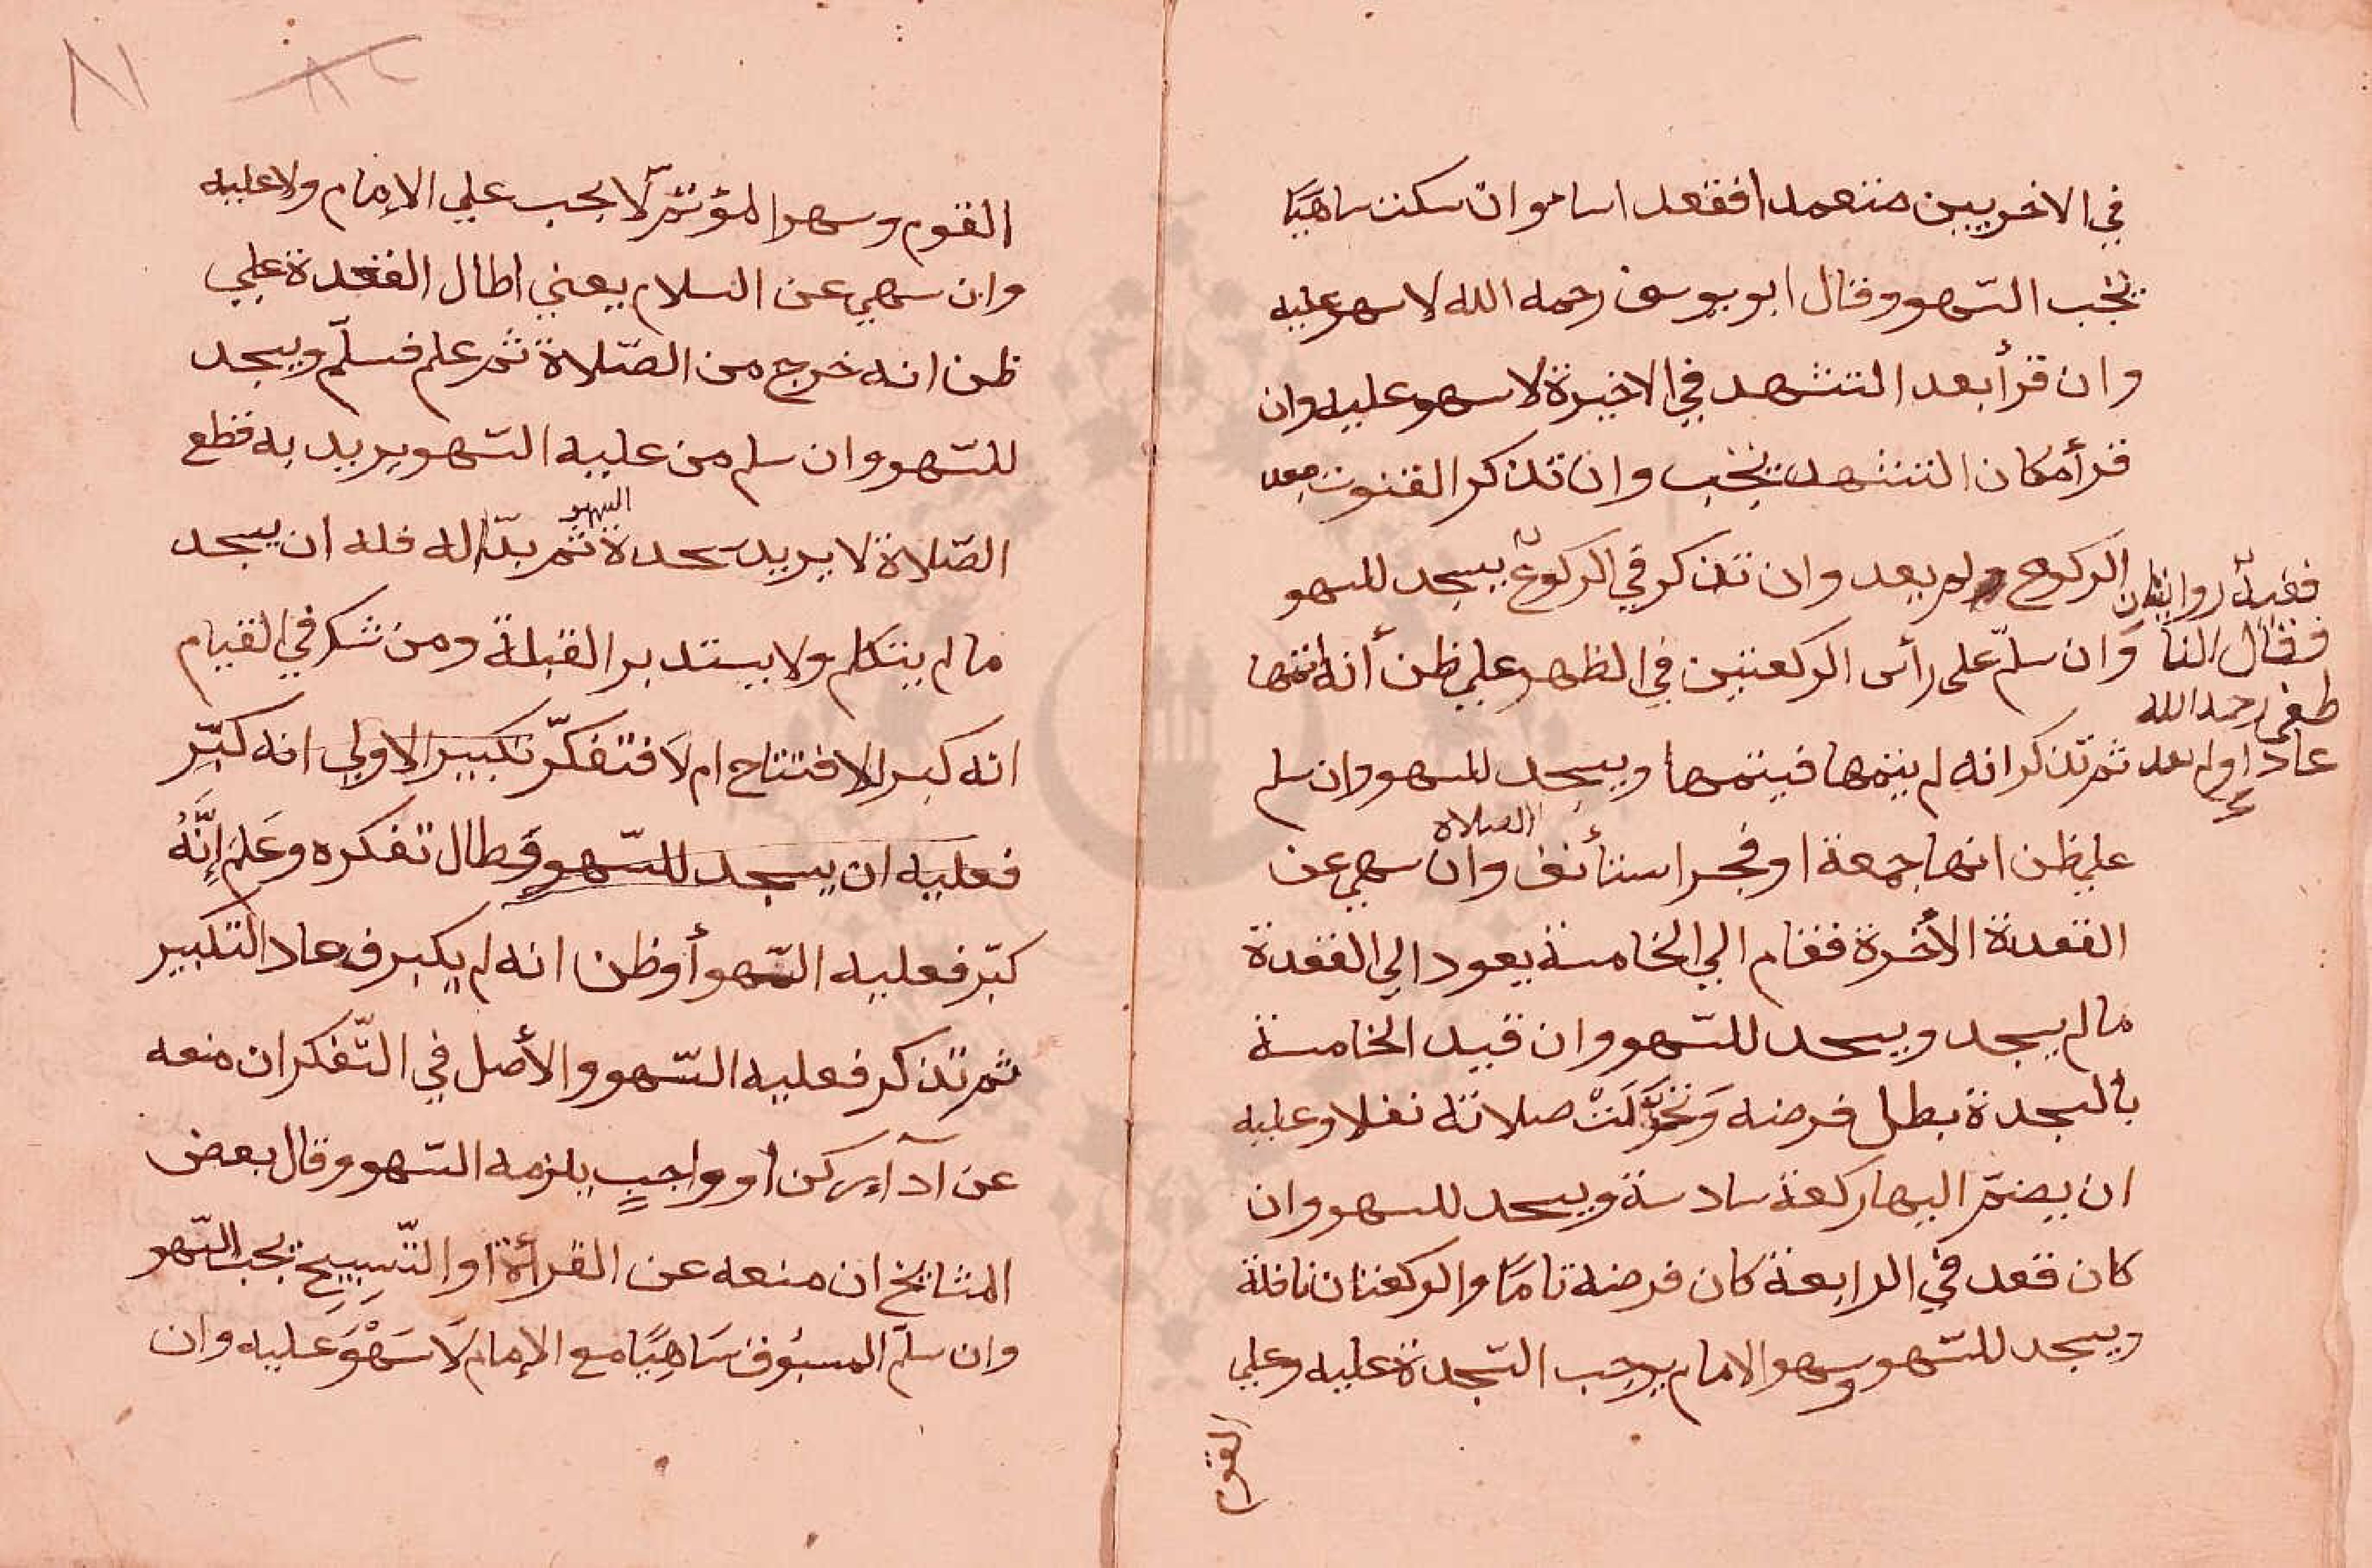 في الاخريين متعمدا فقعد اساء وان سكت ساهيًا
تجب السّهو وقال ابو يوسف رحمه الله لا سهو عليه
وان قرأ بعد التشهد في الاخيرة لا سهو عليه وان
قرأ مكان التشهد تجب وان تذكر القنوت بعد
الركوع ولم يعد وان تذكر في الركوع يسجد للسهو
ففيه روايتان
فقال النا
طفي رحمه الله
عاد او لم يعد
وان سلّم على رأس الركعتين في الظهر علي ظن أنه اتمها
ثم تذكر انه لم يتمها فيتمها ويسجد للسهو وان سلم
علي ظن انها جمعة او فجر استأنف الصلاة وان سهي عن
القعدة الأخرة فقام الي الخامسة يعود الي القعدة
ما لم يسجد ويسجد للسّهو وان قيد الخامسة
بالسجدة بطل فرضه وَتحوّلَتْ صلاته نفلا وعليه
ان يضمّ اليها ركعة سادسة ويسجد للسهو وان
كان قعد في الرابعة كان فرضه تامًا والركعتان نافلة
ويسجد للسّهو وسهو الامام يوجب السّجدة عليه وعلي
القوم
القوم وسهو المؤتمّ لا يجب علي الإمام ولا عليه
وان سهي عن السلام يعني اطال القعدة علي
ظن انه خرج من الصّلاة ثم علم فسلّم ويسجد
للسّهو وان سلم من عليه السّهو يريد به قطع
الصّلاة لا يريد سجدة السهو ثم بدّا له فله ان يسجد
ما لم يتكلم ولا يستدبر القبلة ومن شك في القيام
انه كبر للافتتاح ام لَا فتفكّر تكبير الاولي انه كبّر
فعليه ان يسجد للسّهو وطال تفكره وعَلم إِنَّهُ
كبّر فعليه السّهو أو ظن انه لم يكبر فعاد التكبير
ثم تذكر فعليه السّهو والأصل في التّفكر ان منعه
عن آدآء ركن او واجبٍ يلزمه السّهو وقال بعض
المشايخ ان منعه عن القرأة او التّسبِيحِ يجب السّهو
وان سلّم المسبُوق سَاهِيًا مع الإمام لَا سَهْوَ عَليه وان